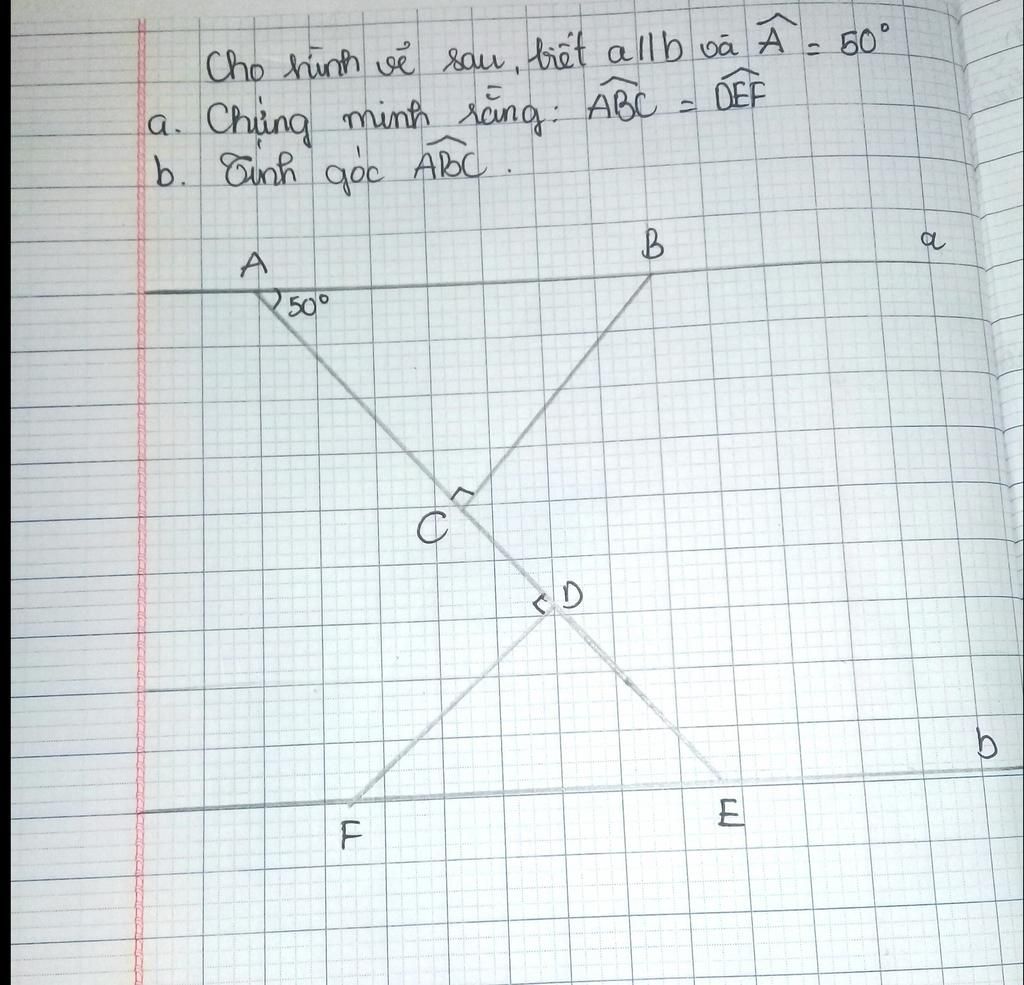 Cho hình vẽ sau, biết a//b và Â = 50°
a. Chứng minh rằng: ABC = DEF
b. Tính góc ABC.
A
B
a
50°
C
D
b
F
E